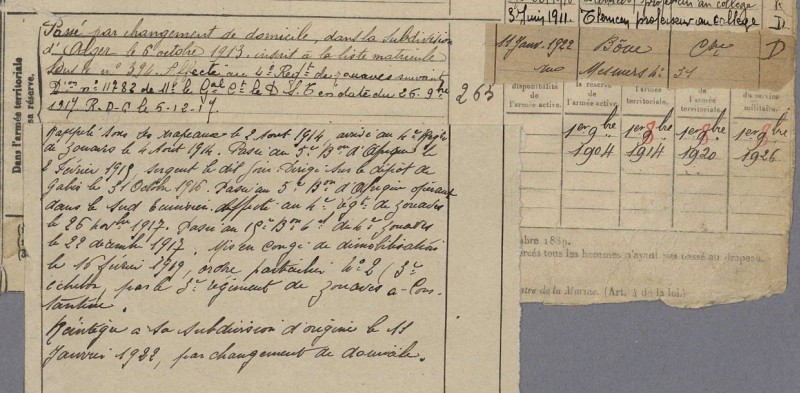 Dans l'armée territoriale
sa réserve.
Passé par changement de domicile, dans la subdivision
d'Alger le 6 octobre 1913. inscrit à la liste matricule
sous le n° 394. Affecté au 4e Regt de zouaves suivant
Don n° 11782 de Mr le Gal Ct le D. S. T. en date du 26 9bre
1917 R.D.C le 5.12.17.
263
Rappelé sous les drapeaux le 2 Aout 1914, arrivé au 4e Régt
de zouaves le 4 Aout 1914. Passé au 5e Bon d'Afrique le
Février 1915, sergent le dit jour. Dirigé sur le dépôt de
Gabès le 31 Octobre 1916. Passé au 5e Bon d'Afrique opérant
dans le Sud Tunisien. Affecté au 4e régt de zouaves
le 26 novbre 1917. Passé au 15e Bon du 4e zouaves
le 22 décembre 1917. Mis en congé de démobilisation
le 16 février 1919, ordre particulier N° 2 (3e
échelon, par le 3e régiment de zouaves à Cons-
tantine.
Réintégré à sa subdivision d'origine le 11
Janvier 1922, par changement de domicile.
professeur au collège
3 Juin 1911. Tlemcen, professeur au collège D
11 Janv. 1922 Bône Cne D
rue Mesmer 51
disponibilité
de l'armée active.
la réserve
de l'armée active.
l'armée
territoriale.
de l'armée
territoriale.
du service
militaire.
1er 9bre
1904
1er 8bre
1914
1er 8bre
1920
1er 8bre
1926
mbre 1889.
ercés tous les hommes n'ayant pas passé au drapeau.
stre de la Marine. (Art. 4 de la loi.)